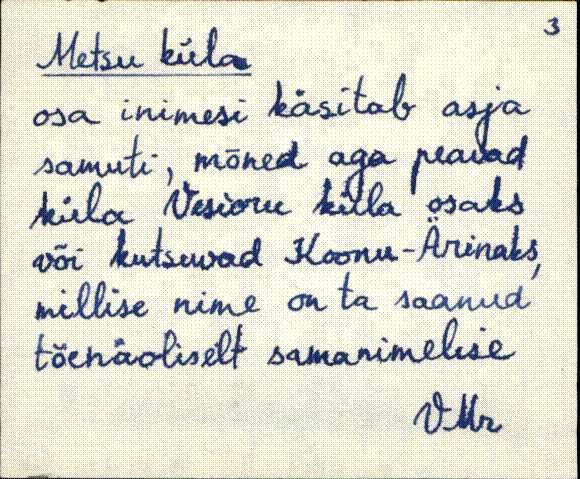 3
Metsu küla
osa inimesi käsitab asja
samuti, mõned aga peavad
küla Vesioru külla osaks
või kutsuvad Koonu-Ärinaks,
millise nime on ta saanud
tõenäoliselt samanimelise
VMr